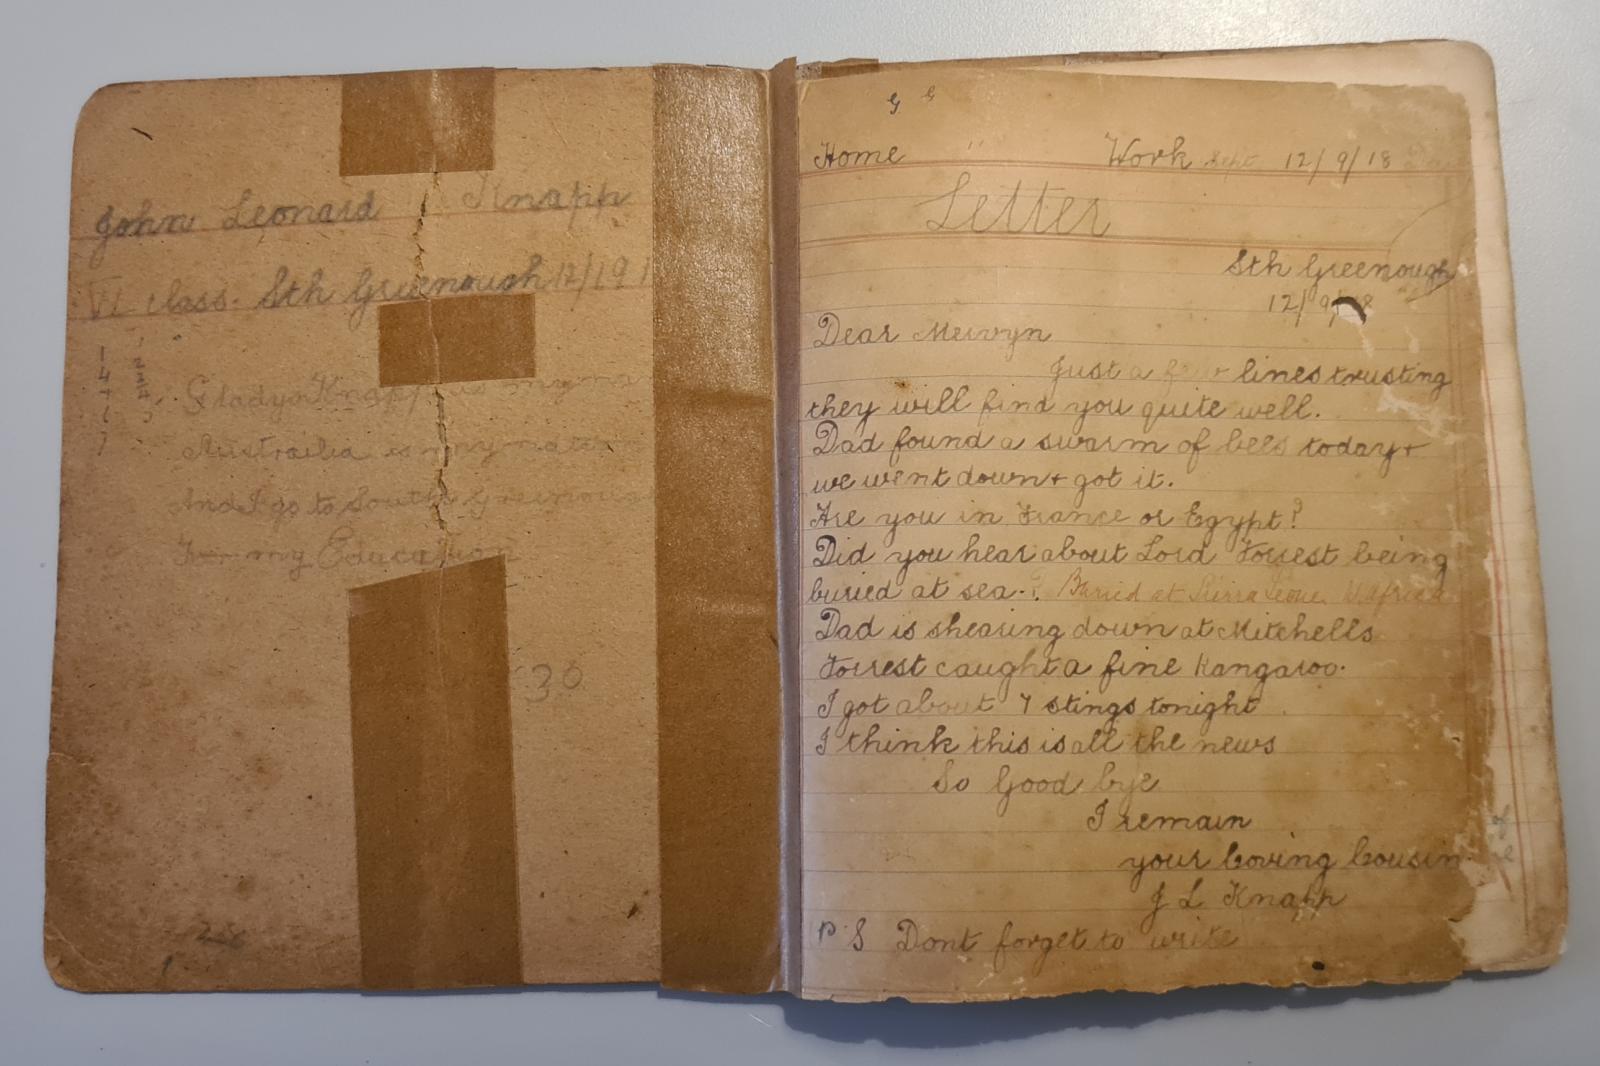 John Leonard Knapp
VI class. Sth Greenough 12/191
Gladys Knapp is my na
Australia is my nation
And I go to South Greenough
For my Education
30
G G
Home " Work Sept. 12/9/18
Letter
Sth Greenough
12/9/18
Dear Mervyn
Just a few lines trusting
they will find you quite well.
Dad found a swarm of bees today +
we went down + got it.
Are you in France or Egypt?
Did you hear about Lord Forrest being
buried at sea? Buried at Sierra Leone W. Africa
Dad is shearing down at Mitchells
Forrest caught a fine Kangaroo.
I got about 7 stings tonight
I think this is all the news
So Good bye
I remain
your loving Cousin
J L Knapp
P S Dont forget to write